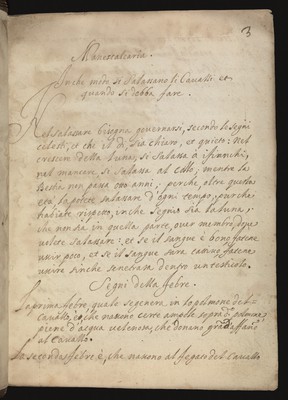 3
Manescalcaria.
Anche modo si Salassano li Cavalli et
quando si debba fare.
Nel Salassare bisogna governarsi, secondo le Segni
celesti, et che il dì, sia chiaro, et quieto; Nel
crescere della luna, si Salassa à i fianchi,
nel mancare si Salassa al Collo, mentre la
Bestia non passa anni, perche oltre questa
età la potete salassare d'ogni tempo, purche
habiate rispetto, in che Segno sia la luna,
che non sia in quella parte, over membro, dove
volete Salassare: et se il sangue è bono fatene
uscir poco, et se il sangue sarà cattivo fatene
uscire
Segni della febre.
La prima febre quale si genera in lo polmone del
Cavallo, è, che nascono certe ampolle sopra il polmone,
piene d'acqua velenosa, che donano grand'affano
al Cavallo.
La seconda febre è, che nascono al fegato del Cavallo